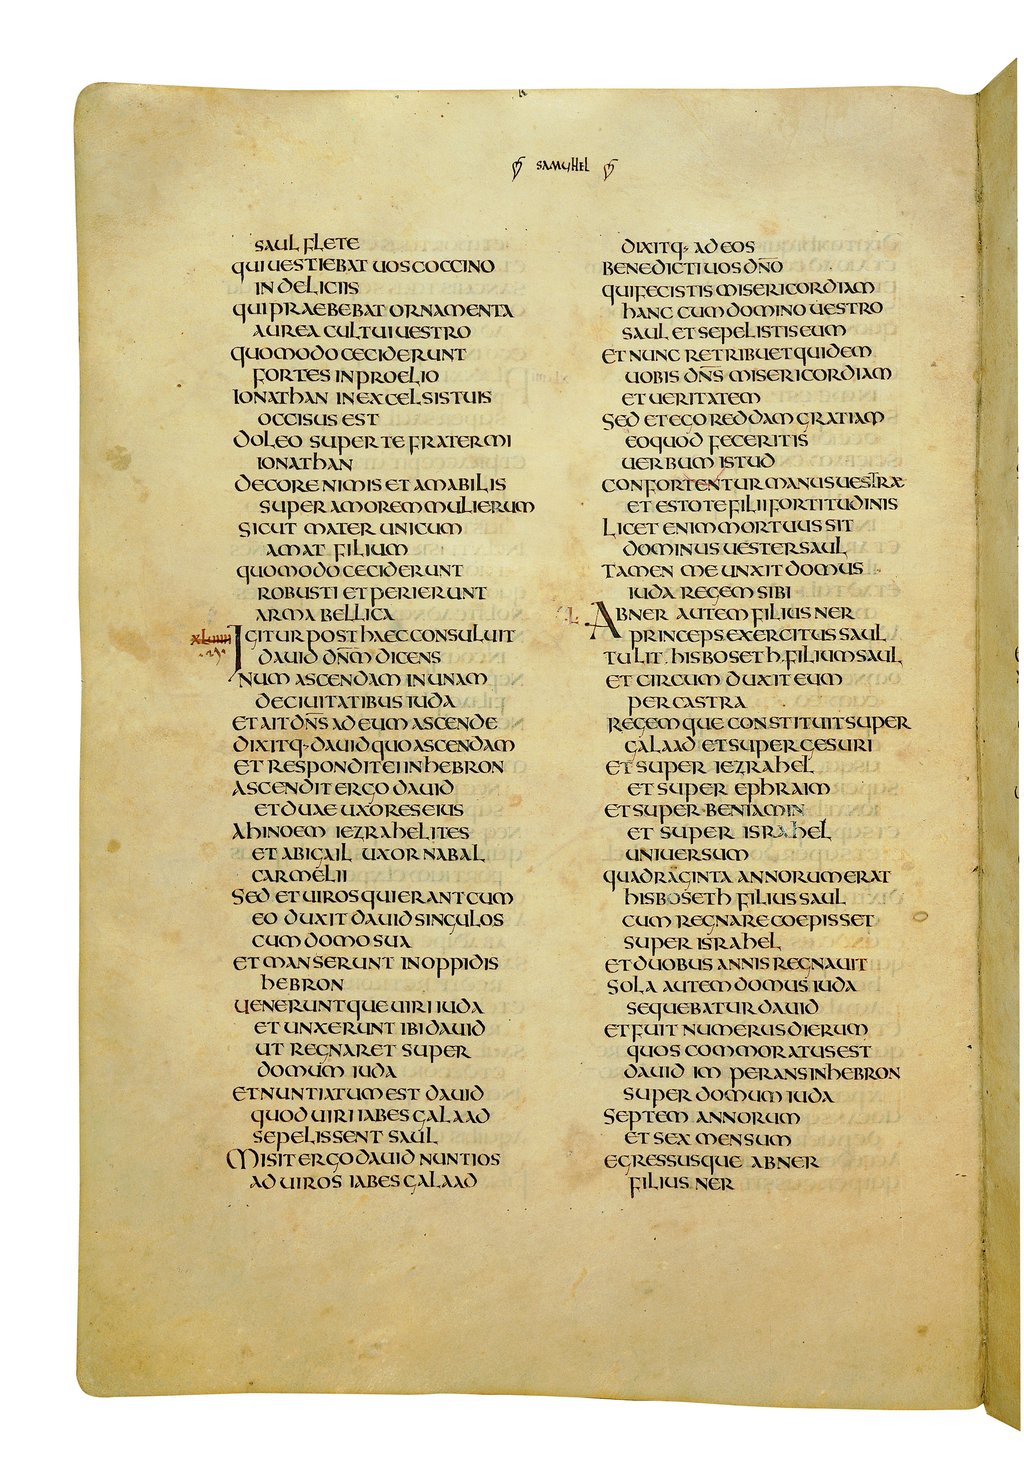 SAMUHEL
SAUL FLETE
QUI UESTIEBAT UOS COCCINO
IN DELICIIS
QUI PRAEBEBAT ORNAMENTA
AUREA CULTUI UESTRO
QUOMODO CECIDERUNT
FORTES IN PROELIO
IONATHAN IN EXCELSIS TUIS
OCCISUS EST
DOLEO SUPER TE FRATER MI
IONATHAN
DECORE NIMIS ET AMABILIS
SUPER AMOREM MULIERUM
SICUT MATER UNICUM
AMAT FILIUM
QUOMODO CECIDERUNT
ROBUSTI ET PERIERUNT
ARMA BELLICA
XLIIII IGITUR POST HAEC CONSULUIT
DAUID DN̄M DICENS
NUM ASCENDAM IN UNAM
DE CIUITATIBUS IUDA
ET AIT DN̄S AD EUM ASCENDE
DIXITQ· DAUID QUO ASCENDAM
ET RESPONDIT EI IN HEBRON
ASCENDIT ERGO DAUID
ET DUAE UXORES EIUS
AHINOEM IEZRAHELITES
ET ABIGAIL UXOR NABAL
CARMELII
SED ET UIROS QUI ERANT CUM
EO DUXIT DAUID SINGULOS
CUM DOMO SUA
ET MANSERUNT IN OPPIDIS
HEBRON
UENERUNTQUE UIRI IUDA
ET UNXERUNT IBI DAUID
UT REGNARET SUPER
DOMUM IUDA
ET NUNTIATUM EST DAUID
QUOD UIRI IABES GALAAD
SEPELISSENT SAUL
MISIT ERGO DAUID NUNTIOS
AD UIROS IABES GALAAD
DIXITQ· AD EOS
BENEDICTI UOS DN̄O
QUI FECISTIS MISERICORDIAM
HANC CUM DOMINO UESTRO
SAUL ET SEPELISTIS EUM
ET NUNC RETRIBUET QUIDEM
UOBIS DN̄S MISERICORDIAM
ET UERITATEM
SED ET EGO REDDAM GRATIAM
EO QUOD FECERITIS
UERBUM ISTUD
CONFORTENTUR MANUS UESTRAE
ET ESTOTE FILII FORTITUDINIS
LICET ENIM MORTUUS SIT
DOMINUS UESTER SAUL
TAMEN ME UNXIT DOMUS
IUDA REGEM SIBI
ABNER AUTEM FILIUS NER
PRINCEPS EXERCITUS SAUL
TULIT HISBOSETH FILIUM SAUL
ET CIRCUM DUXIT EUM
PER CASTRA
REGEMQUE CONSTITUIT SUPER
GALAAD ET SUPER GESURI
ET SUPER IEZRAHEL
ET SUPER EPHRAIM
ET SUPER BENIAMIN
ET SUPER ISRAHEL
UNIUERSUM
QUADRAGINTA ANNORUM ERAT
HISBOSETH FILIUS SAUL
CUM REGNARE COEPISSET
SUPER ISRAHEL
ET DUOBUS ANNIS REGNAUIT
SOLA AUTEM DOMUS IUDA
SEQUEBATUR DAUID
ET FUIT NUMERUS DIERUM
QUOS COMMORATUS EST
DAUID IMPERANS IN HEBRON
SUPER DOMUM IUDA
SEPTEM ANNORUM
ET SEX MENSUM
EGRESSUSQUE ABNER
FILIUS NER